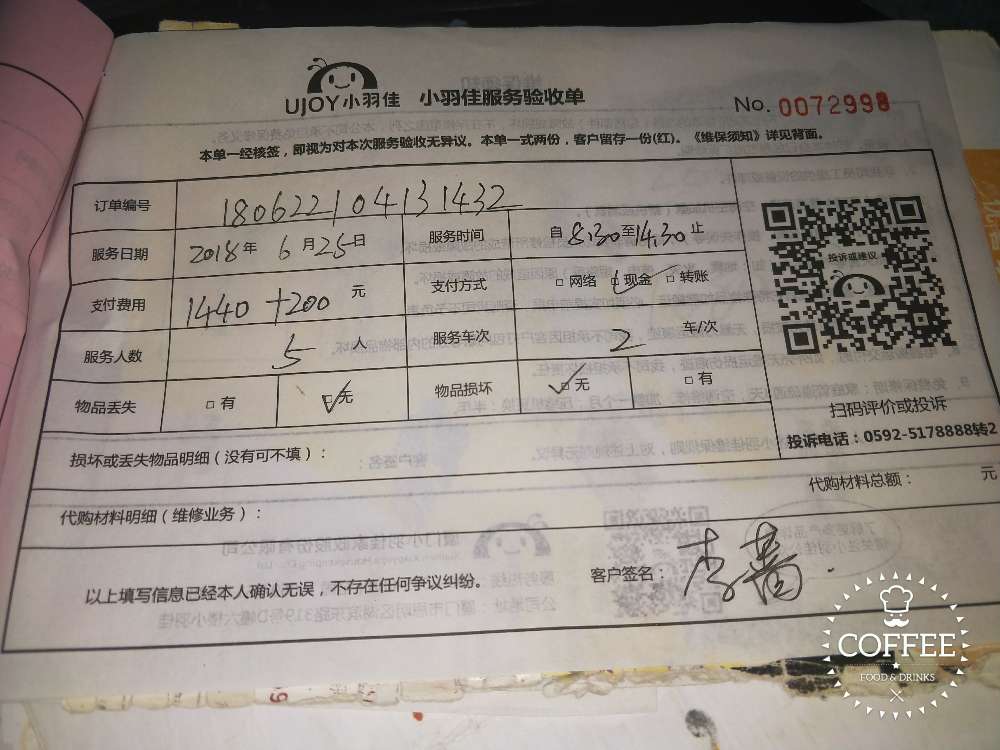 UJOY小羽佳 小羽佳服务验收单
No. 0072998
本单一经核签，即视为对本次服务验收无异议。本单一式两份，客户留存一份(红)。《维保须知》详见背面。
订单编号 180622104131432
服务日期 2018年 6月25日 服务时间 自8:30至14:30止
支付费用 1440+200 元 支付方式 □网络 □现金 □转账
服务人数 5 人 服务车次 2 车/次
物品丢失 □有 ☑无 物品损坏 ☑无 □有
投诉或建议
扫码评价或投诉
投诉电话：0592-5178888转2
损坏或丢失物品明细（没有可不填）：
代购材料明细（维修业务）： 代购材料总额： 元
以上填写信息已经本人确认无误，不存在任何争议纠纷。 客户签名：
COFFEE
FOOD & DRINKS